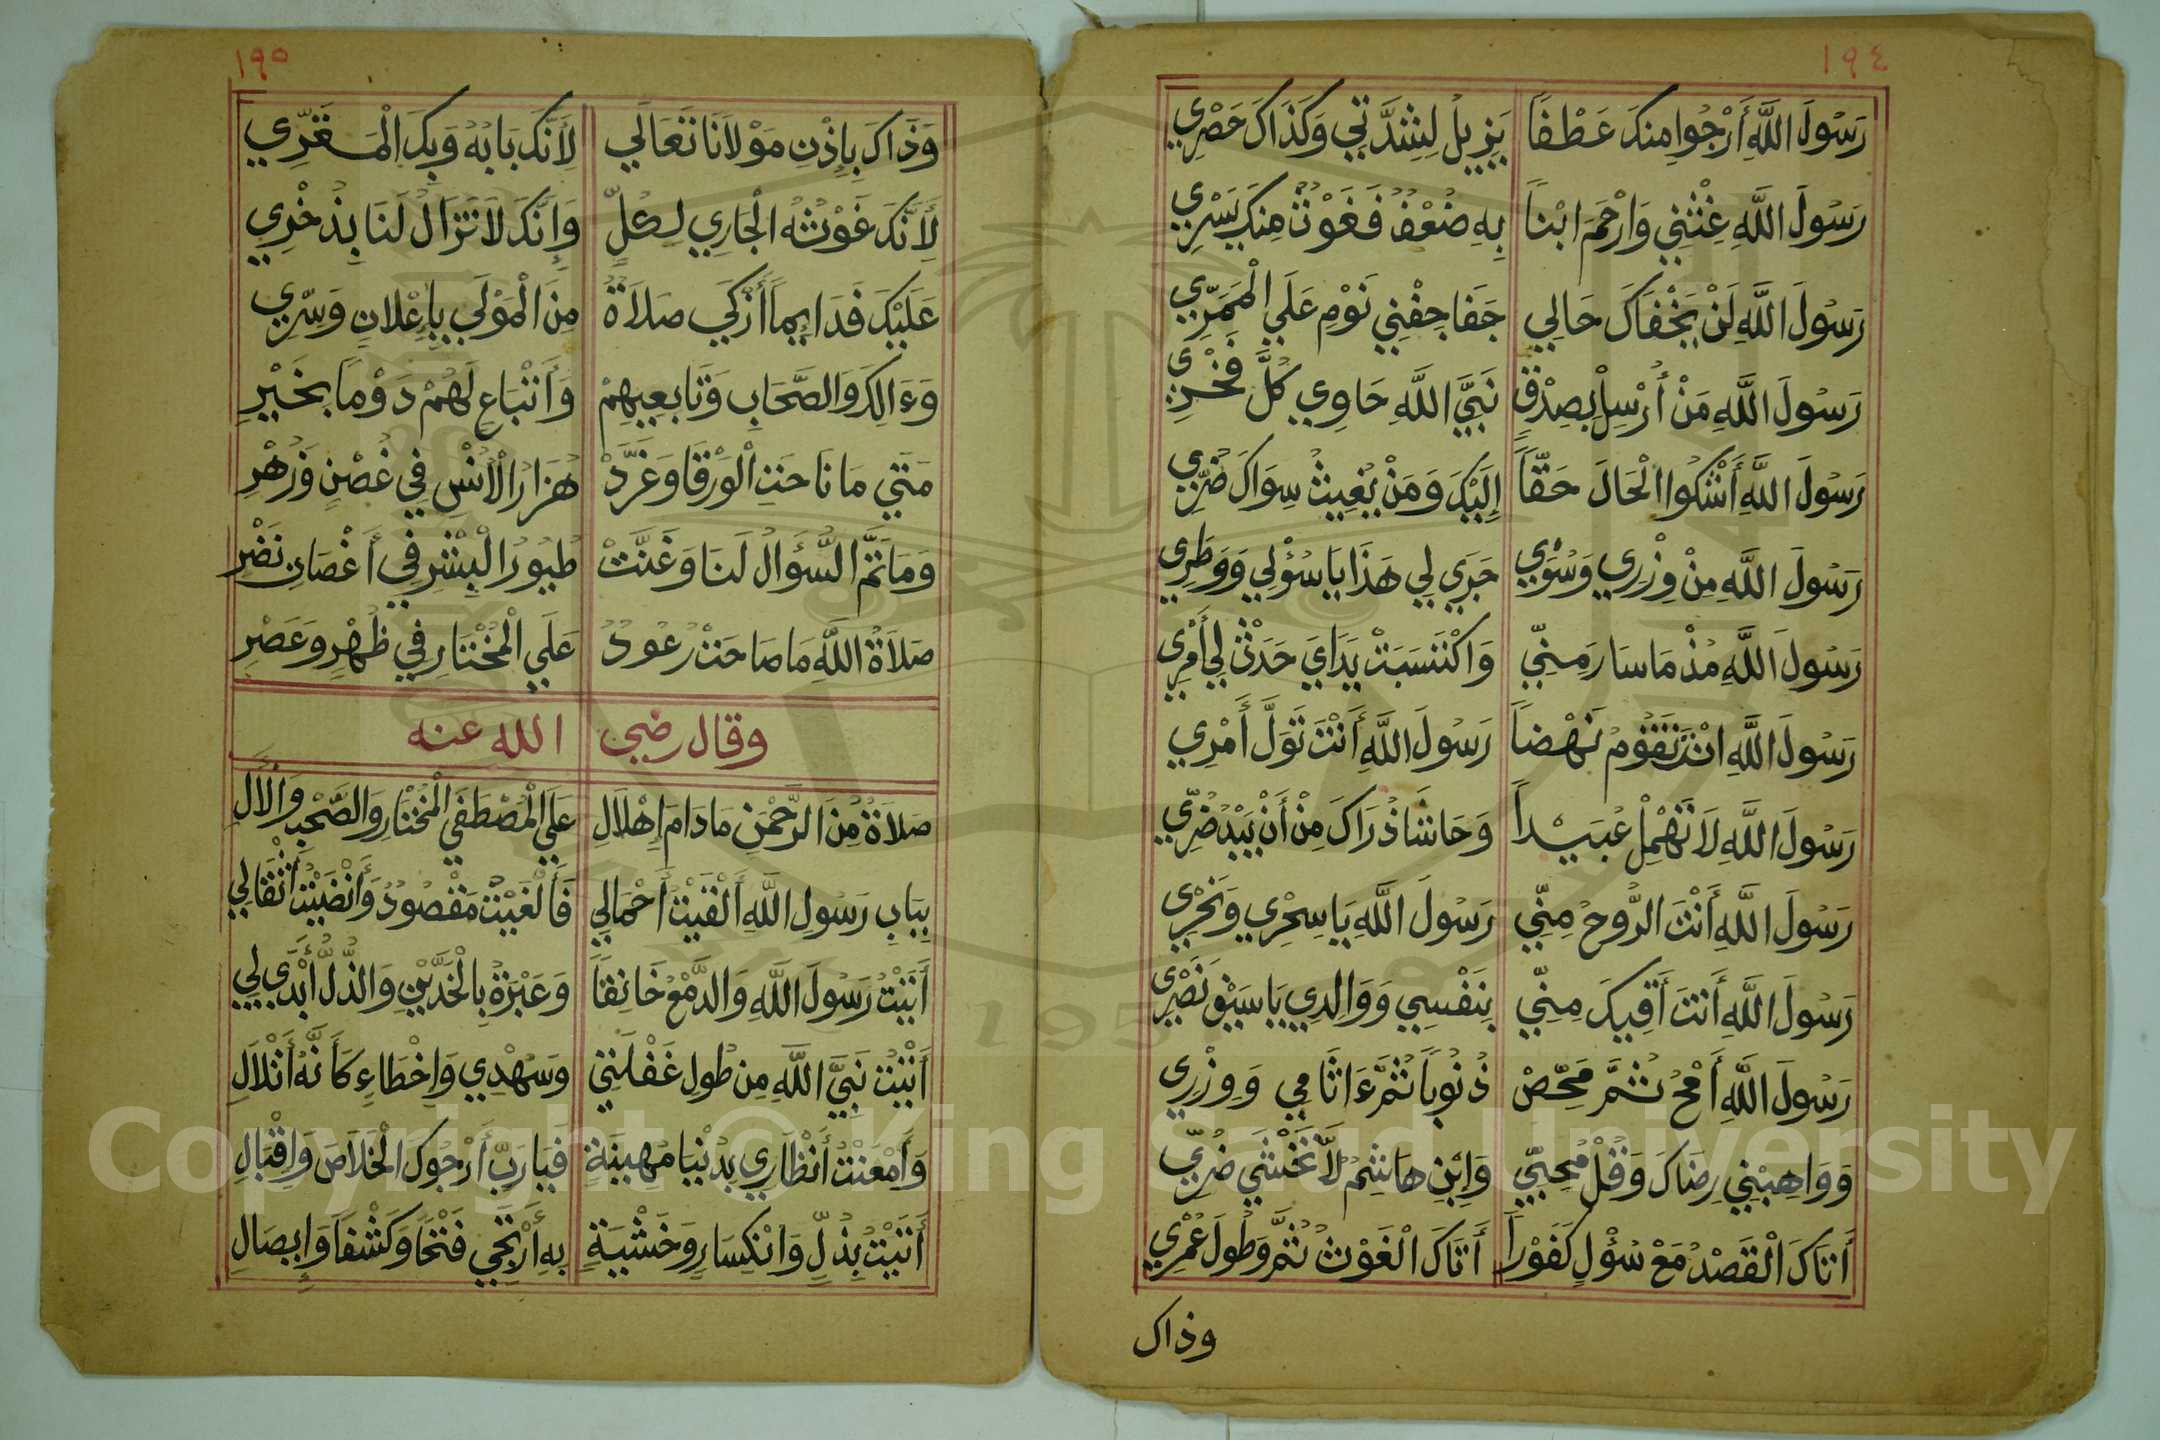 ١٩٤
رَسُولَ اللَّهِ أَرْجُوا مِنكَ عَطْفًا يَزِيلُ لِشِدَّتِي وَكَذَاكَ حَصْرِي
رَسُولَ اللَّهِ غِثْنِي وَارْحَمَ ابْنًا بِهِ ضُعْفٌ فَغَوْثٌ مِنكَ يَسْرِي
رَسُولَ اللَّهِ لَنْ يَخْفَاكَ حَالِي جَفَا جِفْنِي نَوْمِ عَلَي الْمَمَرِّي
رَسُولَ اللَّهِ مَنْ أُرْسِلْ بِصِدْقٍ نَبِيَّ اللَّهِ حَاوِي كُلَّ فَخْرِي
رَسُولَ اللَّهِ أَشْكُوا الْحَالَ حَقّاً إِلَيْكَ وَمَنْ يُغِيثُ سِوَاكَ ضُرِّي
رَسُولَ اللَّهِ مِنْ وِزْرِي وَسُوْيِ جَرَي لِي هَذَا يَا سُؤْلِي وَوَطَرِي
رَسُولَ اللَّهِ مُذْ مَا سَارَ مِنِّي وَاكْتَسَبَتْ يَدَايَ حَدَثْ لِي أَمْرِي
رَسُولَ اللَّهِ انْتَ تَقُومُ نَهْضاً رَسُولَ اللَّهِ أَنْتَ تَوَلَّ أَمْرِي
رَسُولَ اللَّهِ لَا تَهْمِلْ عُبَيْداً وَحَاشَا ذُرَاكَ مِنْ أَنْ يَبْدُ ضُرِّي
رَسُولَ اللَّهِ أَنْتَ الرُّوحُ مِنِّي رَسُولَ اللَّهِ يَا سِحْرِي وَنَحْرِي
رَسُولَ اللَّهِ أَنتَ أَقِيكَ مِنِّي بِنَفْسِي وَوَالِدِي يَا سَيْقَ نَصْرِي
رَسُولَ اللَّهِ أَمْحُ ثُمَّ مَحِّصْ ذُنُوباً ثُمَّ ءَاثَامِي وَوِزْرِي
وَوَاهِبْنِي رِضَاكَ وَقُلْ مُحِبِّي وَابْنِ هَاشِمْ لاَّ تَخْشَي ضُرِّي
أَتَاكَ الْقَصْدُ مَعْ سُؤْلٍ كَفَوْراً أَتَاكَ الْغَوْثُ ثُمَّ وَطُولَ عُمْرِي
وذاك
١٩٥
وَذَاكَ بِإِذْنِ مَوْلاَنَا تَعَالَي لأَنَّكَ بَابُهُ وَبِكَ الْمَقَرِّي
لأَنَّكَ غَوْثُهُ الْجَارِي لِكُلٍّ وَإِنَّكَ لاَ تَزَالُ لَنَا بِذُخْرِي
عَلَيْكَ فَدَايِماً أَزْكَي صَلاَةٌ مِنَ الْمَوْلَي بِإِعْلانٍ وَسِرِّي
وَءَالِكَ وَالصَّحَابِ وَتَابِعِيهِمْ وَأَتْبَاعٍ لَهُمْ دَوْمًا بِخَيْرِ
مَتَي مَا نَاحَتِ الْوَرْقَا وَغَرَّدْ هُزَارُ الْأُنْسِ فِي غُصْنٍ وَزَهْرِ
وَمَا تَمَّ السُّؤَالُ لَنَا وَغَنَّتْ طُيُورُ الْبِشْرِ فِي أَغْصَانِ نَضْرِ
صَلاَةُ اللَّهِ مَا صَاحَتْ رُعُودُ عَلَي الْمُخْتَارِ فِي ظُهْرٍ وَعَصْرِ
وقال رضي الله عنه
صَلاَةٌ مِنَ الرَّحْمَنِ مَا دَامَ إِهْلاَلِ عَلَي الْمُصْطَفَي الْمُخْتَارِ وَالصَّحْبِ وَالْآلِ
بِبَابِ رَسُولِ اللَّهِ أَلْقَيْتُ أَحْمَالِي فَأَلْغَيْتُ مَقْصُودُ وَأَنْضَيْتُ أَثْقَالِي
أَتَيْتُ رَسُولَ اللَّهِ وَالدَّمْعُ خَانِقًا وَعَبْرَةُ بِالْخَدَّيْنِ وَالذُّلُّ أَبْدَي لِي
أَتَيْتُ نَبِيَّ اللَّهِ مِن طُولِ غَفْلَتِي وَسَهْدِي وَاخْطَاءٍ كَأَنَّهُ أَتْلاَلِ
وَأَمْعَنْتُ أَنْظَارِي بِدُنْيَا مُهِينَةٍ فَيَا رَبِّ أَرْجُوكَ الْخَلاَصَ وَإِقْبَالِ
أَتَيْتُ بِذُلٍّ وَانْكِسَارٍ وَخَشْيَةٍ بِهِ أَرْتَجِي فَتْحًا وَكَشْفًا وَإِيصَالِ
Copyright © King Saud University
1957